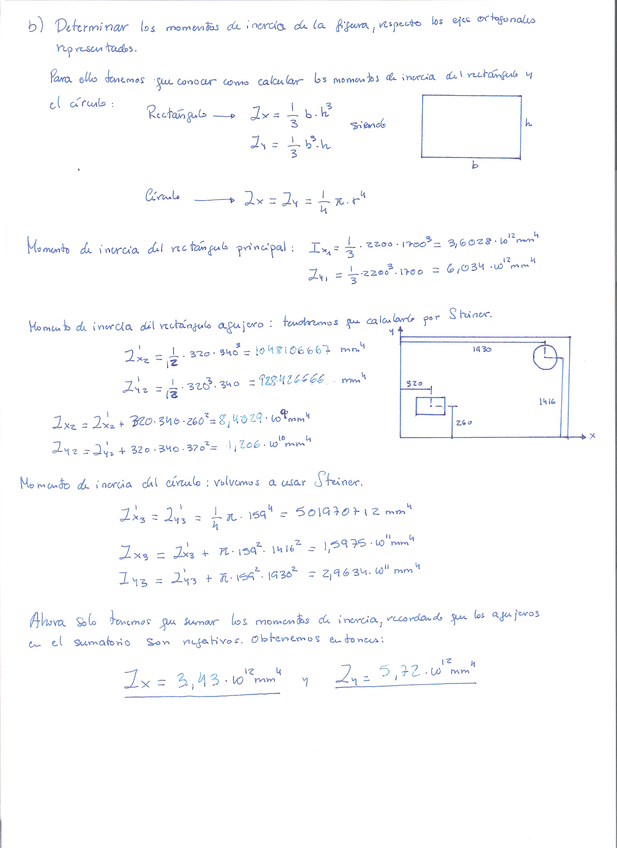 b) Determinar los momentos de inercia de la figura, respecto los ejes ortogonales
representados.
Para ello tenemos que conocer como calcular los momentos de inercia del rectángulo y
el círculo:
Rectángulo → Ix = 1/3 b·h³
siendo
Iy = 1/3 b³·h
h
b
Círculo → Ix = Iy = 1/4 π·r⁴
Momento de inercia del rectángulo principal: Ix₁ = 1/3 · 2200·1700³ = 3,6028·10¹² mm⁴
Iy₁ = 1/3 · 2200³·1700 = 6,034·10¹² mm⁴
Momento de inercia del rectángulo agujero: tendremos que calcularlo por Steiner.
I'x₂ = 1/12 · 320·340³ = 1048106667 mm⁴
I'y₂ = 1/12 · 320³·340 = 928426666 mm⁴
Ix₂ = I'x₂ + 320·340·260² = 8,4029·10⁹ mm⁴
Iy₂ = I'y₂ + 320·340·320² = 1,206·10¹⁰ mm⁴
y
1930
320
1416
260
x
Momento de inercia del círculo: volvemos a usar Steiner.
I'x₃ = I'y₃ = 1/4 π·159⁴ = 501970712 mm⁴
Ix₃ = I'x₃ + π·159²·1416² = 1,5975·10¹¹ mm⁴
Iy₃ = I'y₃ + π·159²·1930² = 2,9634·10¹¹ mm⁴
Ahora solo tenemos que sumar los momentos de inercia, recordando que los agujeros
en el sumatorio son negativos. Obtenemos entonces:
Ix = 3,43·10¹² mm⁴ y Iy = 5,72·10¹² mm⁴